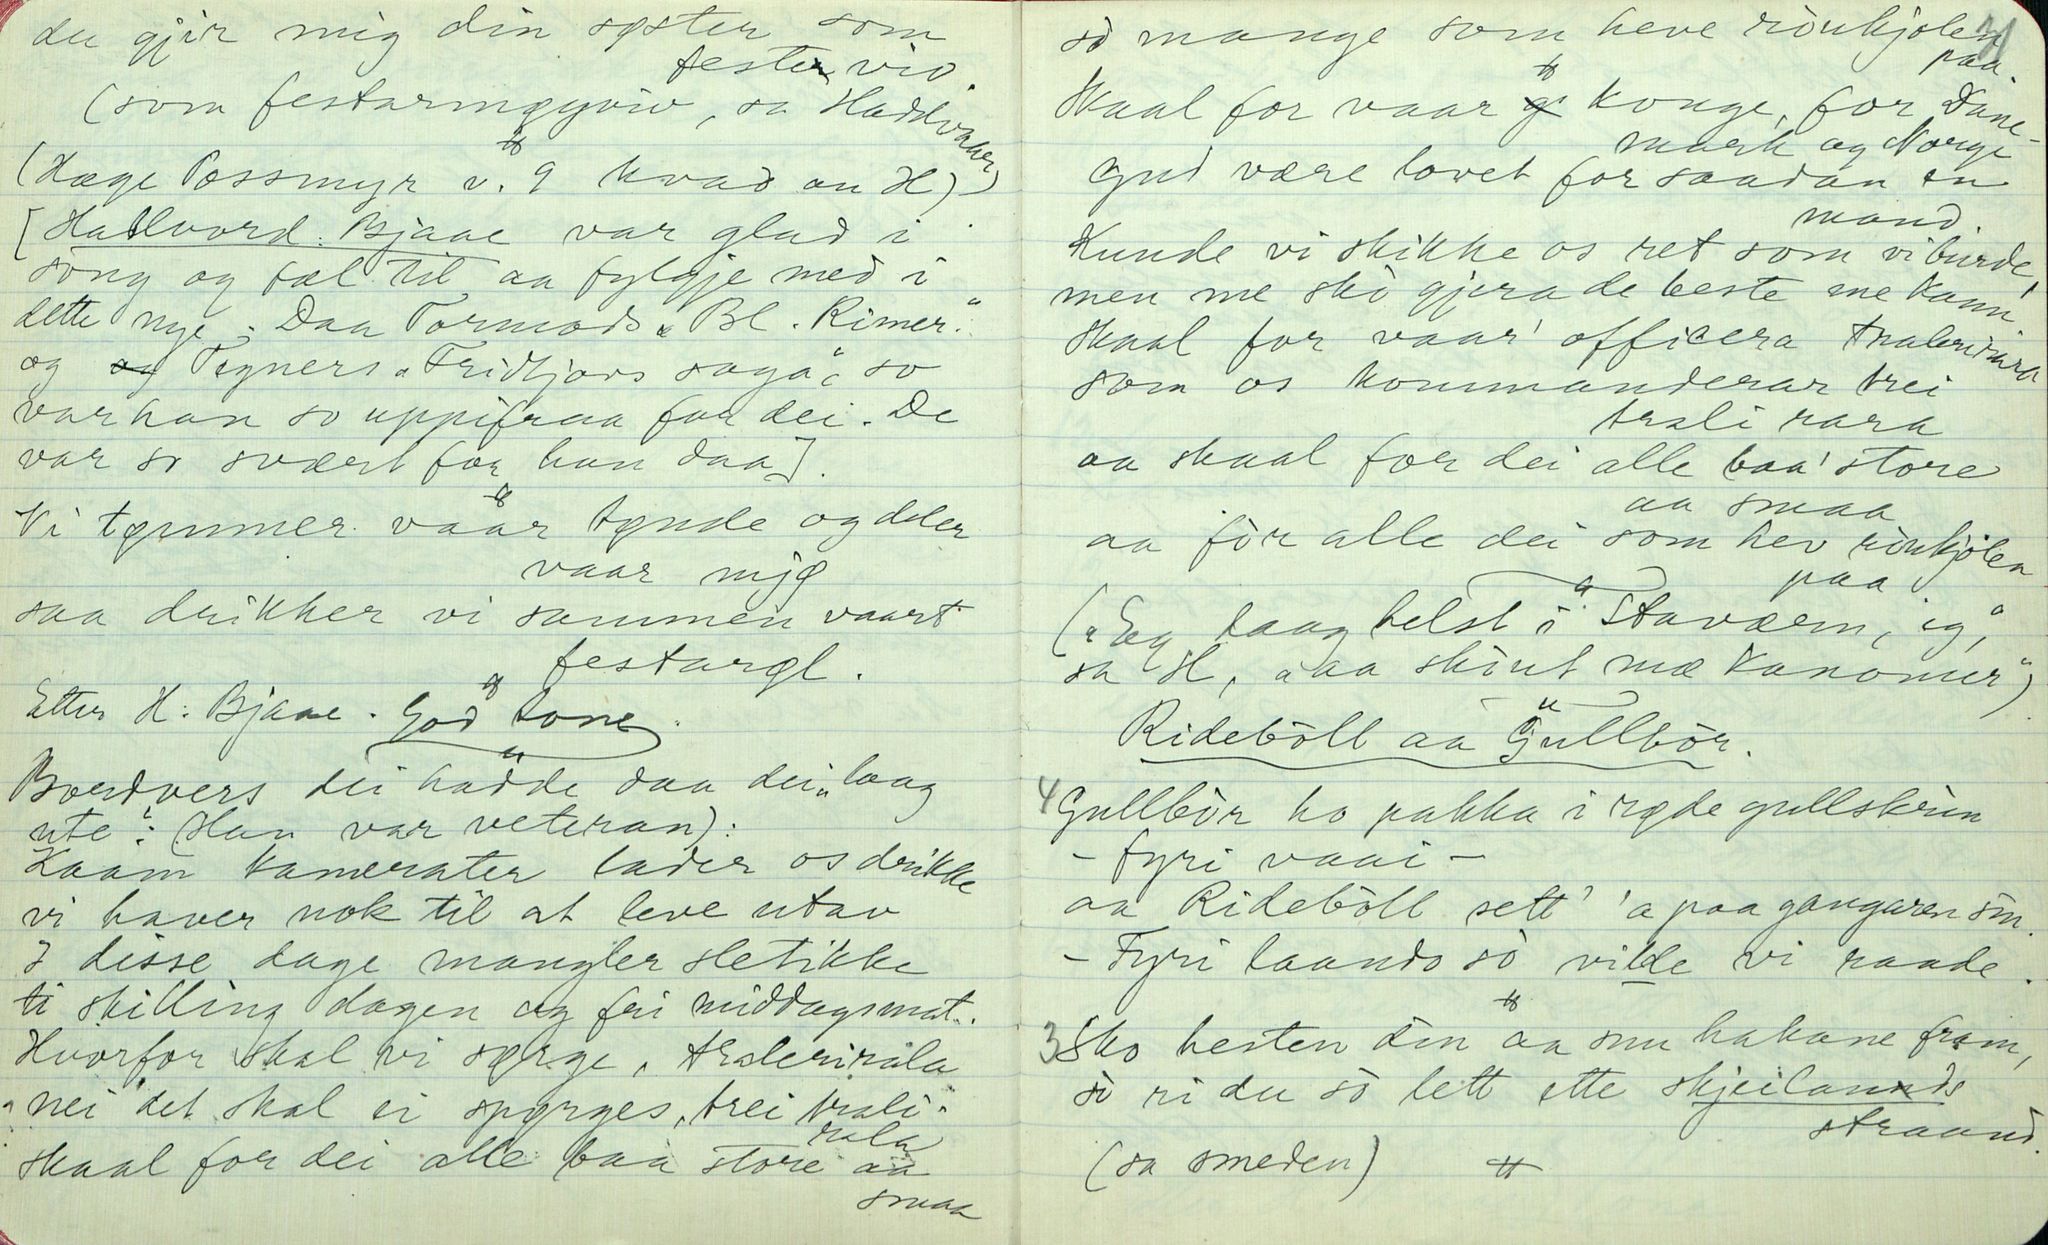 du gjir mig din søster som
festen viv.
(som festarmøyviv, sa Haddvaar)
(Hæge Possmyr v. 9 kvad an H)
[Hallvord Bjaae var glad i
song og fæl til aa fylgje med i
dette nye. Daa Tormods „Bl. Rimer“
og Tegners „Fridtjovs saga“, so
var han so uppifraa for dei. De
var so svært for han daa].
Vi tømmer vaar tønde og deler
vaar mjø
saa drikker vi sammen vaart
festarøl.
Etter H. Bjaae. God tone.
Bordvers dei hadde daa dei „laag
ute“: (Han var veteran):
Kaam kamerater lader os drikke
vi haver nok til at leve utav
I disse dage mangler slet ikke
ti skilling dagen og fri middagsmat.
Hvorfor skal vi sørge, traleririla
nei det skal ei spørges, trei trali-
rala
skaal for dei alle baa store aa
smaa
31
sò mange som heve riòukjolen
paa.
Skaal for vaar konge, for Dane-
mark og Norge
Gud være lovet for saadan en
mand
Kunde vi skikke os ret som vi burde,
men me skò gjera de beste me kann
Skaal for vaar' officera
som os kommanderar trei
trali rara
aa skaal for dei alle baa' store
aa smaa
aa fòr alle dei som hev riòukjòlen
paa
(„Eg laag helst i Staværn, eg“,
sa H, „aa skòut mæ kanoner“).
Rideböll aa Gullbòr.
4 Gullbòr ho pakka i røde gullskrin
– fyri vaai –
aa Rideböll sett' 'a paa gangaren sin.
– Fyri laando sò vilde vi raade.
3 Sko hesten din aa snu hakane fram,
sò ri du sò lett ette skjeilands
straand.
(sa smeden)